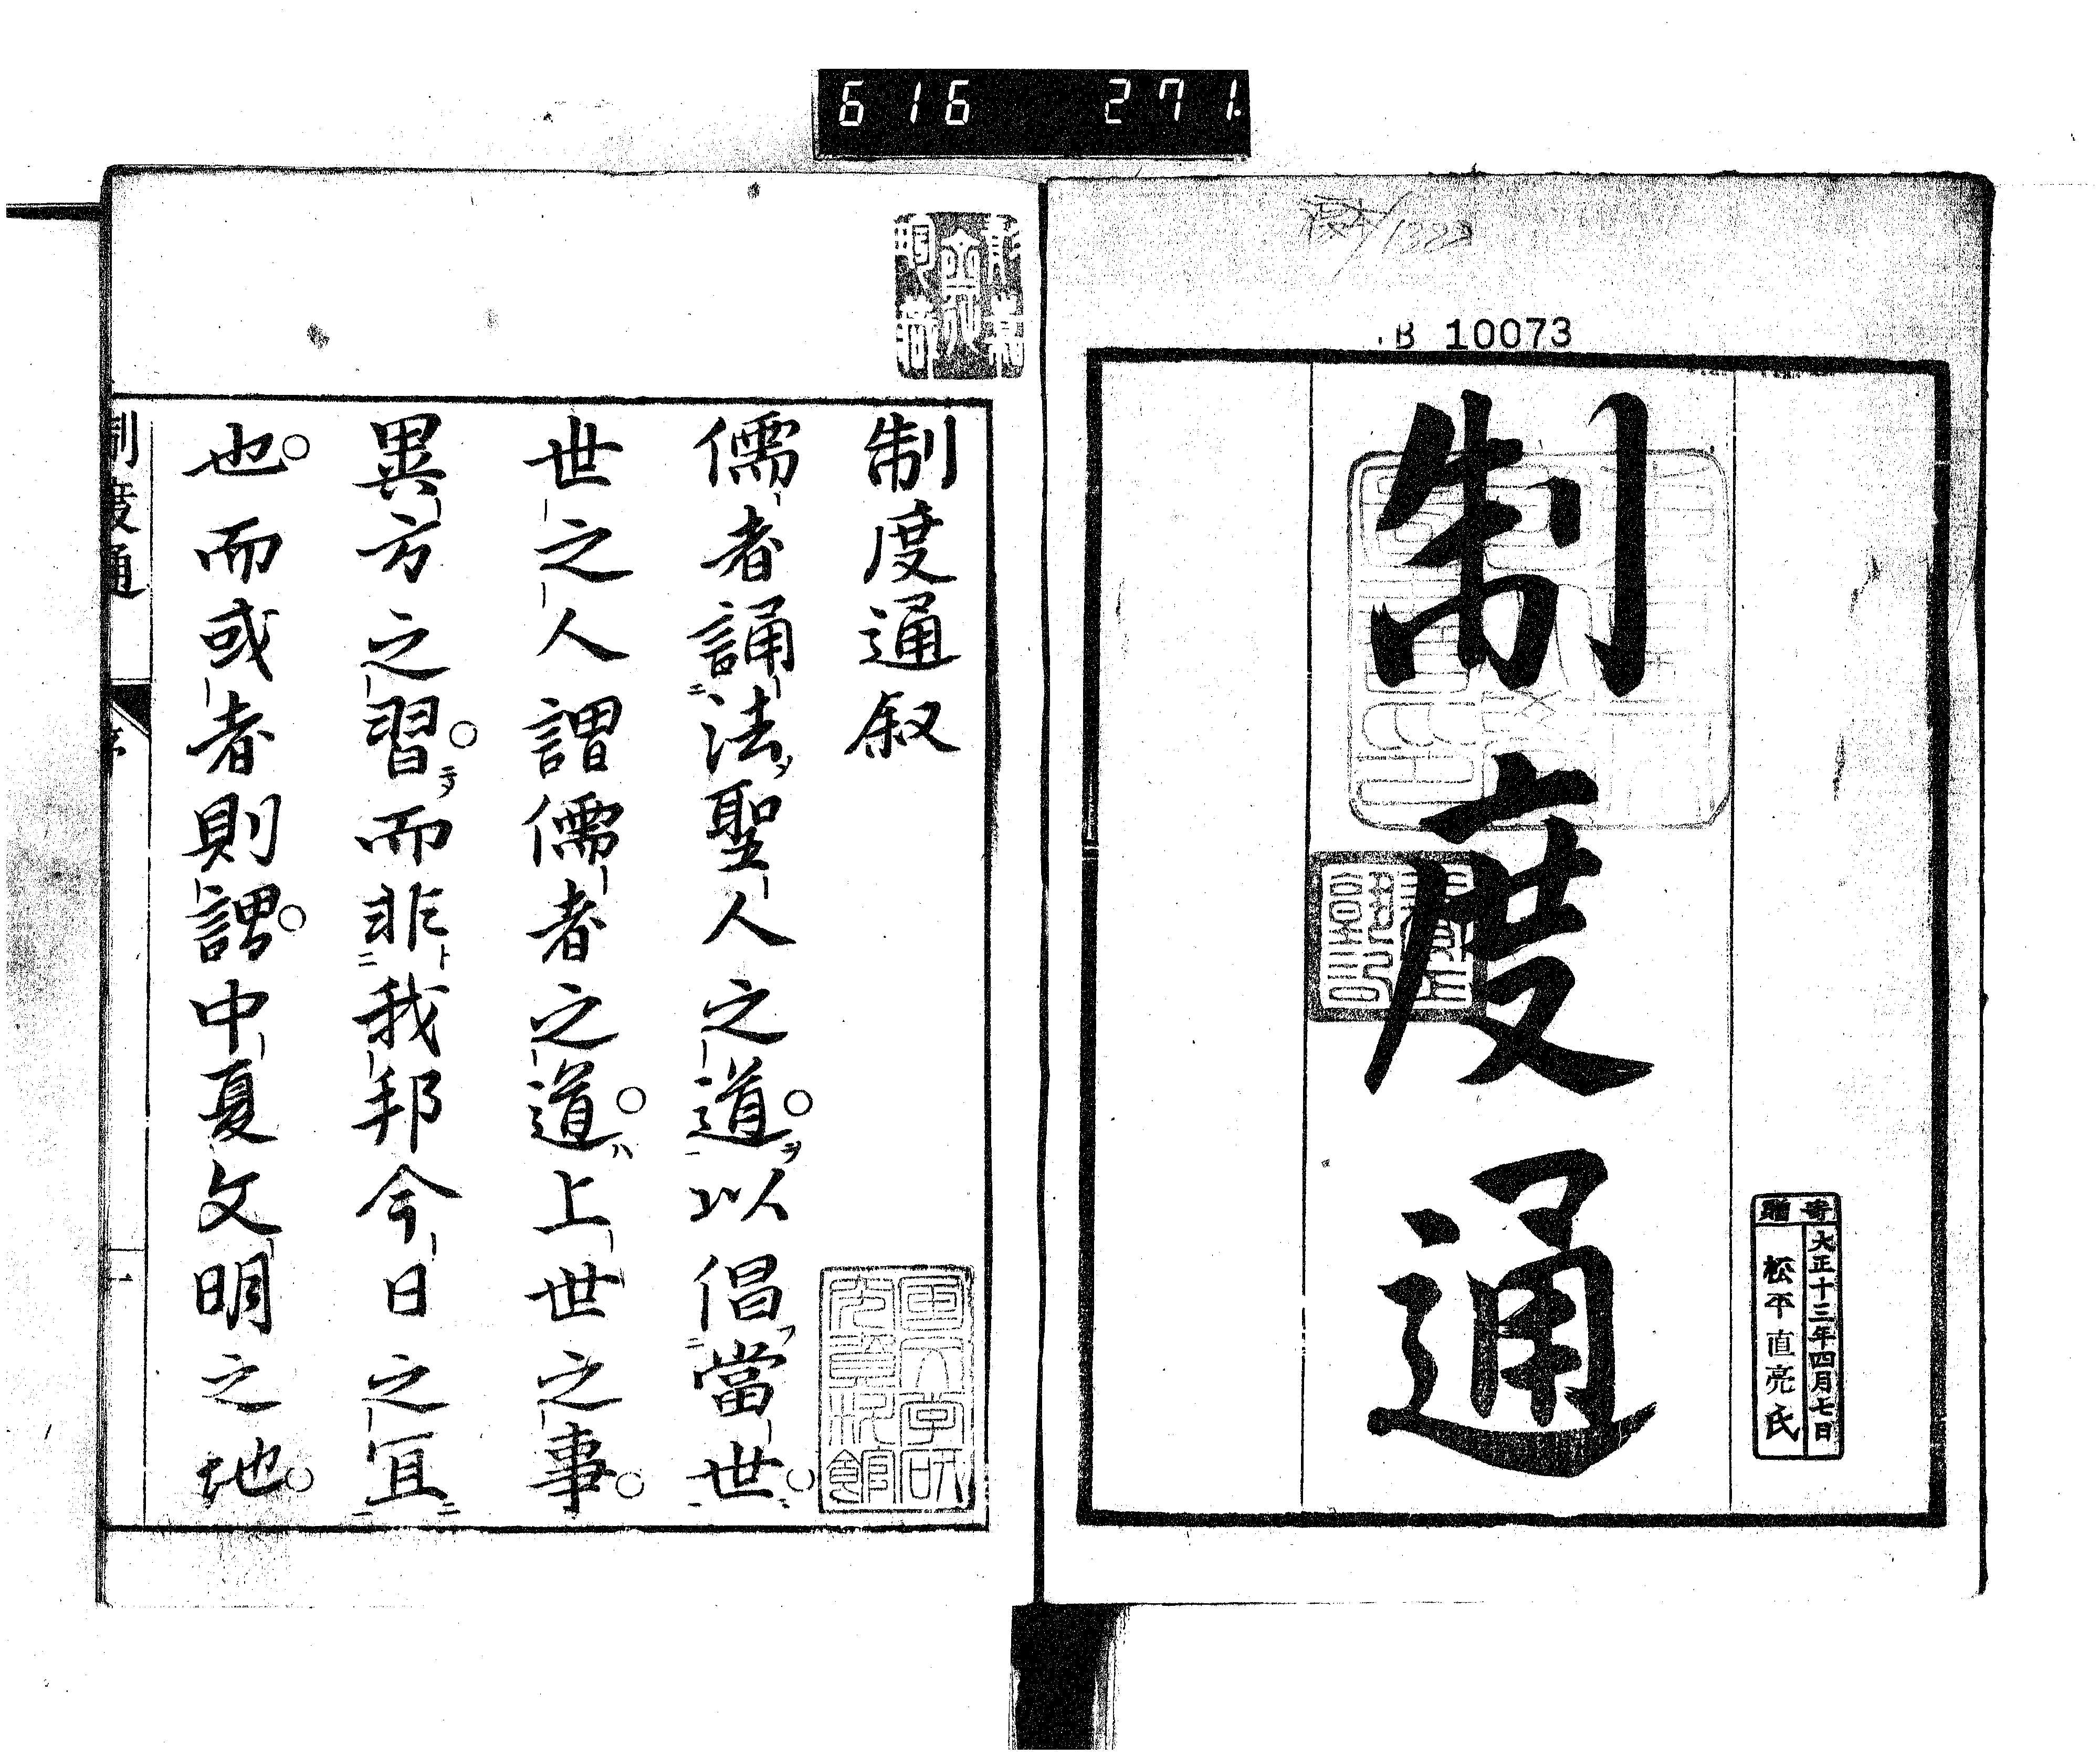 616 271.
B 10073
制度通
寄贈
大正十三年四月七日
松平直亮氏
制度通叙
儒者誦法聖人之道以倡當世
世之人謂儒者之道上世之事
異方之習而非我邦今日之冝
也而或者則謂中夏文明之地
制度通
序
一